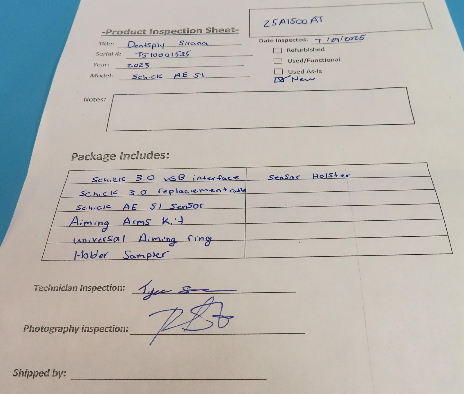 25A1500AT
-Product Inspection Sheet-
Title: Dentsply Sirona
Date Inspected: 7/09/2025
Serial #: TS10001525
Refurbished
Year: 2023
Used/Functional
Model: Schick AE S1
Used As-Is
New
Notes:
Package Includes:
Schick 3.0 USB interface Sensor Holster
Schick 3.0 replacement cable
Schick AE S1 Sensor
Aiming Arms Kit
universal Aiming ring
Holder Sampler
Technician Inspection:
Photography Inspection:
Shipped by: